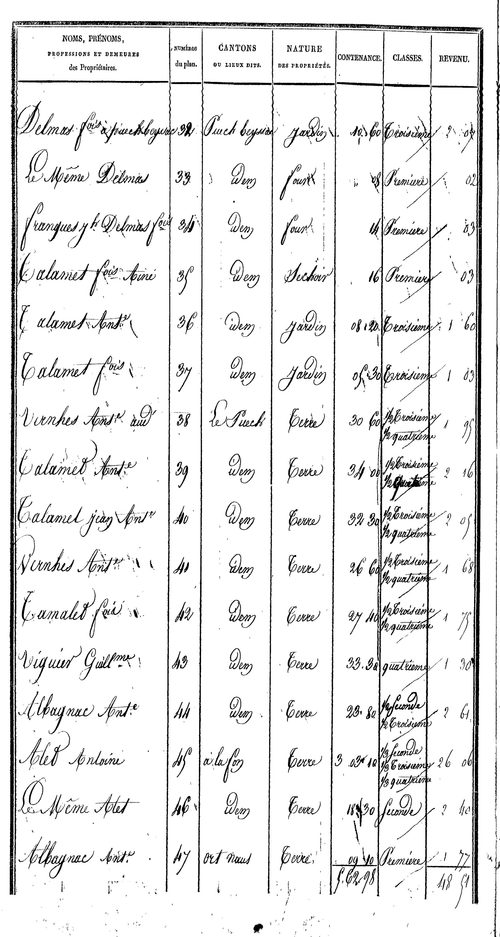 NOMS, PRÉNOMS, PROFESSIONS ET DEMEURES des Propriétaires. NUMÉROS du plan. CANTONS OU LIEUX DITS. NATURE DES PROPRIÉTÉS. CONTENANCE. CLASSES. REVENU.
Delmas fois à puech beyssac 32 Puech beyssac jardin 10 60 Troisième 2 07
Le Même Delmas 33 idem four 08 Première 02
franques jh Delmas fois 34 idem four 14 Première 03
Talamet fois Ainé 35 idem Séchoir 16 Première 03
Talamet Ante 36 idem jardin 08 20 Troisième 1 60
Talamet fois 37 idem jardin 05 30 Troisième 1 03
Vernhes Ante aud 38 Le Puech Terre 30 60 1/2 Troisième 1/2 quatrième 1 95
Talamet Ante 39 idem Terre 34 00 1/2 Troisième 1/2 quatrième 2 16
Talamet jean Ante 40 idem Terre 32 30 1/2 Troisième 1/2 quatrième 2 05
Vernhes Ante 41 idem Terre 26 60 1/2 Troisième 1/2 quatrième 1 68
Tamalet fois 42 idem Terre 27 40 1/2 Troisième 1/2 quatrième 1 75
Viguier Guillme 43 idem Terre 33 30 quatrième 1 30
Albagnac Ante 44 idem Terre 23 80 1/2 Seconde 1/2 Troisième 2 61
Alet Antoine 45 à la fon Terre 3 03 10 1/3 Seconde 1/3 Troisième 1/3 quatrième 26 06
Le Même Alet 46 idem Terre 18 30 Seconde 2 40
Albagnac Ante 47 ort naus Terre 09 10 Première 1 77
5. 62 98 48 51